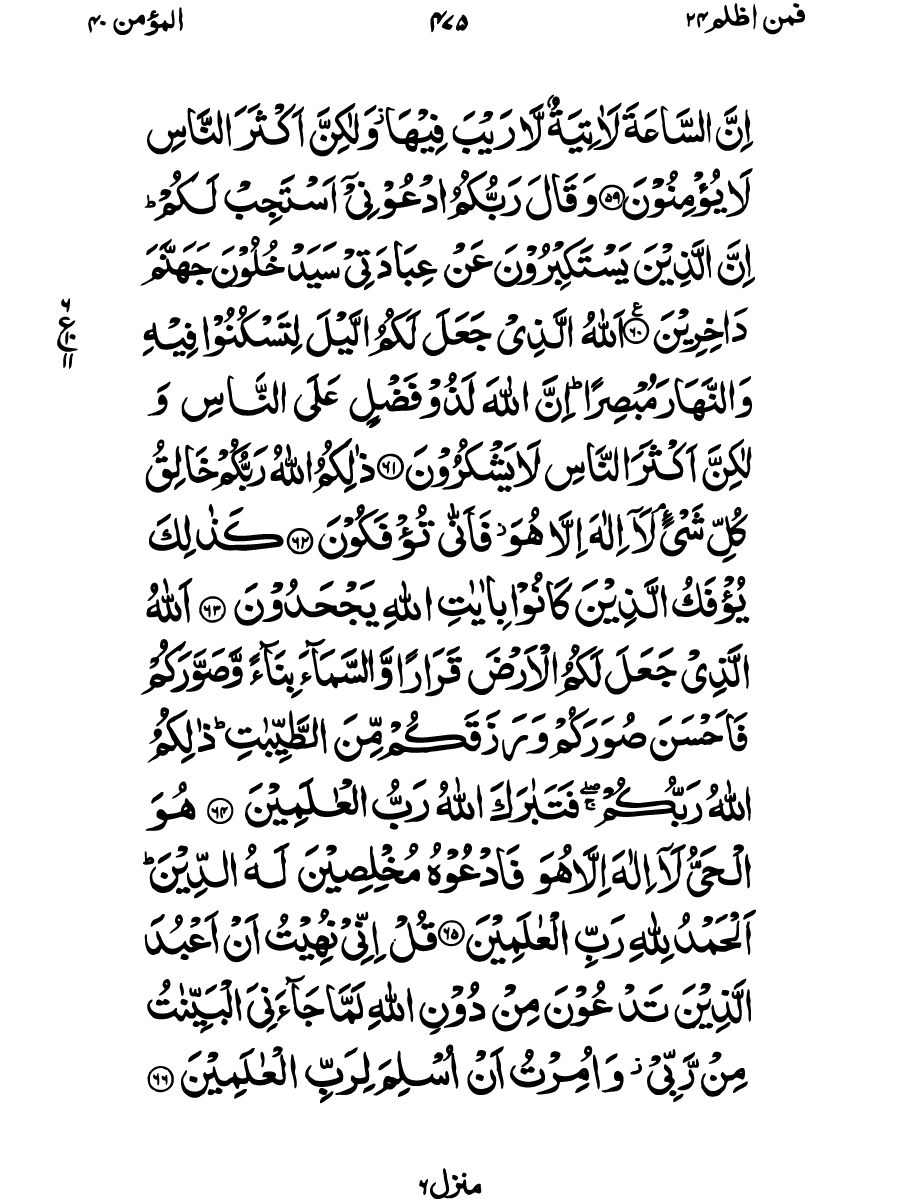 فمن اظلم ۲۴
۴۷۵
المؤمن ۴۰
اِنَّ السَّاعَةَ لَاٰتِيَةٌ لَّا رَيْبَ فِيْهَا ۫ وَلٰكِنَّ اَكْثَرَ النَّاسِ
لَا يُؤْمِنُوْنَ ۝۵۹ وَقَالَ رَبُّكُمُ ادْعُوْنِيْٓ اَسْتَجِبْ لَكُمْ ؕ
اِنَّ الَّذِيْنَ يَسْتَكْبِرُوْنَ عَنْ عِبَادَتِيْ سَيَدْخُلُوْنَ جَهَنَّمَ
دَاخِرِيْنَ ۝۶۰ۧ اَللّٰهُ الَّذِيْ جَعَلَ لَكُمُ الَّيْلَ لِتَسْكُنُوْا فِيْهِ
۶
ع
۱۰
۱۱
وَالنَّهَارَ مُبْصِرًا ؕ اِنَّ اللّٰهَ لَذُوْ فَضْلٍ عَلَى النَّاسِ وَ
لٰكِنَّ اَكْثَرَ النَّاسِ لَا يَشْكُرُوْنَ ۝۶۱ ذٰلِكُمُ اللّٰهُ رَبُّكُمْ خَالِقُ
كُلِّ شَيْءٍ ۘ لَآ اِلٰهَ اِلَّا هُوَ ۫ فَاَنّٰى تُؤْفَكُوْنَ ۝۶۲ كَذٰلِكَ
يُؤْفَكُ الَّذِيْنَ كَانُوْا بِاٰيٰتِ اللّٰهِ يَجْحَدُوْنَ ۝۶۳ اَللّٰهُ
الَّذِيْ جَعَلَ لَكُمُ الْاَرْضَ قَرَارًا وَّالسَّمَآءَ بِنَآءً وَّصَوَّرَكُمْ
فَاَحْسَنَ صُوَرَكُمْ وَرَزَقَكُمْ مِّنَ الطَّيِّبٰتِ ؕ ذٰلِكُمُ
اللّٰهُ رَبُّكُمْ ۖۚ فَتَبٰرَكَ اللّٰهُ رَبُّ الْعٰلَمِيْنَ ۝۶۴ هُوَ
الْحَيُّ لَآ اِلٰهَ اِلَّا هُوَ فَادْعُوْهُ مُخْلِصِيْنَ لَهُ الدِّيْنَ ؕ
اَلْحَمْدُ لِلّٰهِ رَبِّ الْعٰلَمِيْنَ ۝۶۵ قُلْ اِنِّيْ نُهِيْتُ اَنْ اَعْبُدَ
الَّذِيْنَ تَدْعُوْنَ مِنْ دُوْنِ اللّٰهِ لَمَّا جَآءَنِيَ الْبَيِّنٰتُ
مِنْ رَّبِّيْ ۫ وَاُمِرْتُ اَنْ اُسْلِمَ لِرَبِّ الْعٰلَمِيْنَ ۝۶۶
منزل ۶